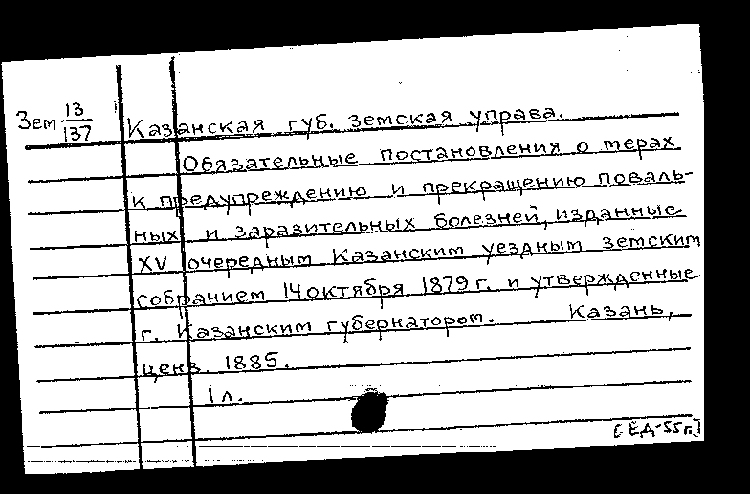 Зем 13/137 Казанская губ. земская управа.
Обязательные постановления о мерах
к предупреждению и прекращению поваль-
ных и заразительных болезней, изданные
XV очередным Казанским уездным земским
собранием 14 октября 1879 г. и утвержденные
г. Казанским губернатором. Казань,
ценз. 1885.
1 л.
[ЕД-55 г.]